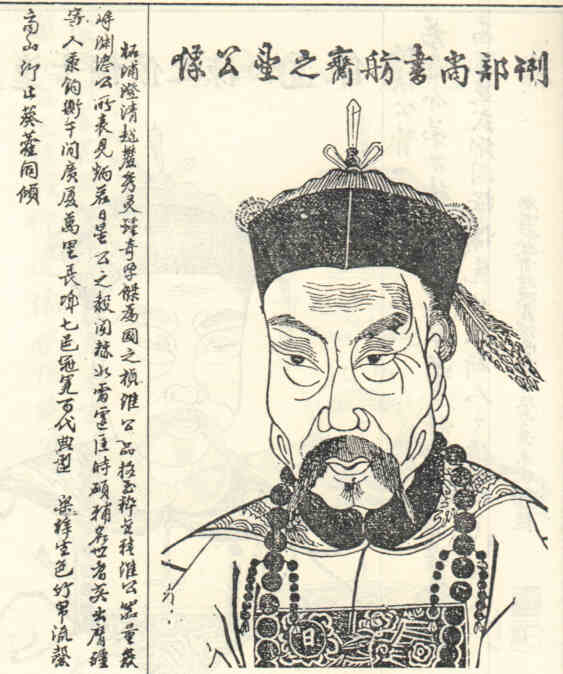 刑部尚書舫齋之望公像
柘浦澄清越麓秀灵鍾奇孕傑為國之楨維公品格玉粹金精維公器量嶽
峙淵渟公所表見炳若日星公之敭閱赫如雷霆匡時碩輔名世耆英出膺疆
寄入秉鈞衡千間廣厦萬里長城七邑冠冕百代典型 桑梓生色竹帛流馨
高山仰止葵藿同傾
日